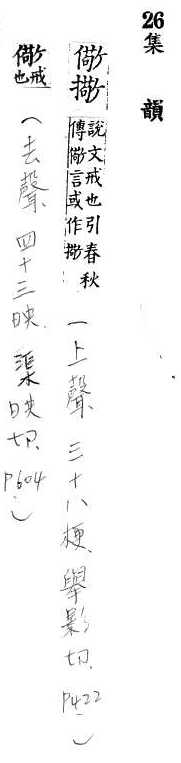 26集 韻
儆擏
說文戒也引春秋
傳儆言或作擏
(上聲、三十八梗、舉影切、P422)
儆
戒
也
(去聲、四十三映、渠映切、P604)